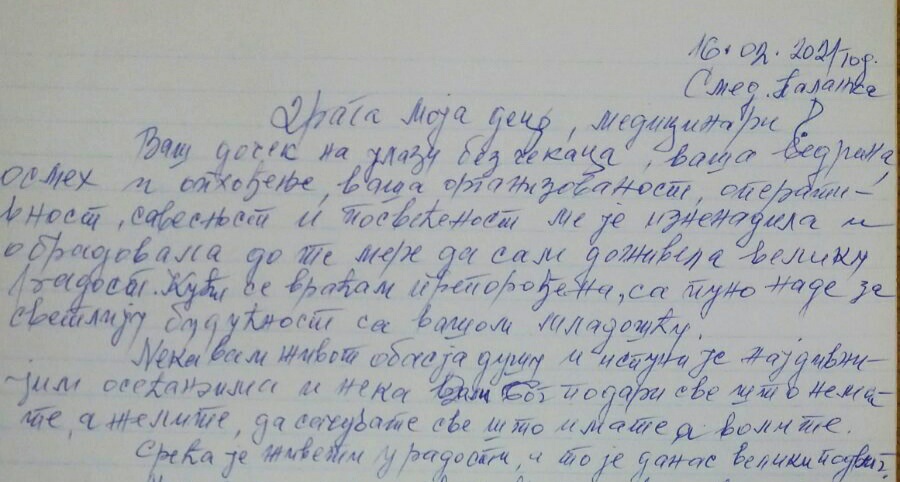 16.02.2021 год.
Смед. Паланка
Драга моја децо, медицинари!
Ваш дочек на улазу без чекања, ваша ведрина,
осмех и опхођење, ваша организованост, операти-
вност, савесност и посвећеност ме је изненадила и
обрадовала до те мере да сам доживела велику
радост. Кући се враћам препорођена, са пуно наде за
светлију будућност са вашом младошћу.
Нека вам живот обасја душу и испуни је најдивни-
јим осећањима и нека вам Бог подари све што нема-
те, а желите, да сачувате све што имате а волите.
Срећа је живети у радости, и то је данас велики подвиг.